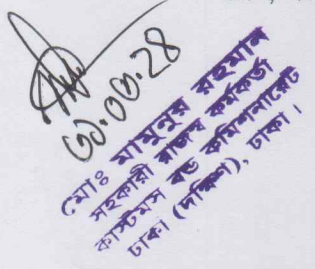 ৩১.০৩.২৪
মোঃ মামুনুর রহমান
সহকারী রাজস্ব কর্মকর্তা
কাস্টমস বন্ড কমিশনারেট
ঢাকা (দক্ষিণ), ঢাকা।